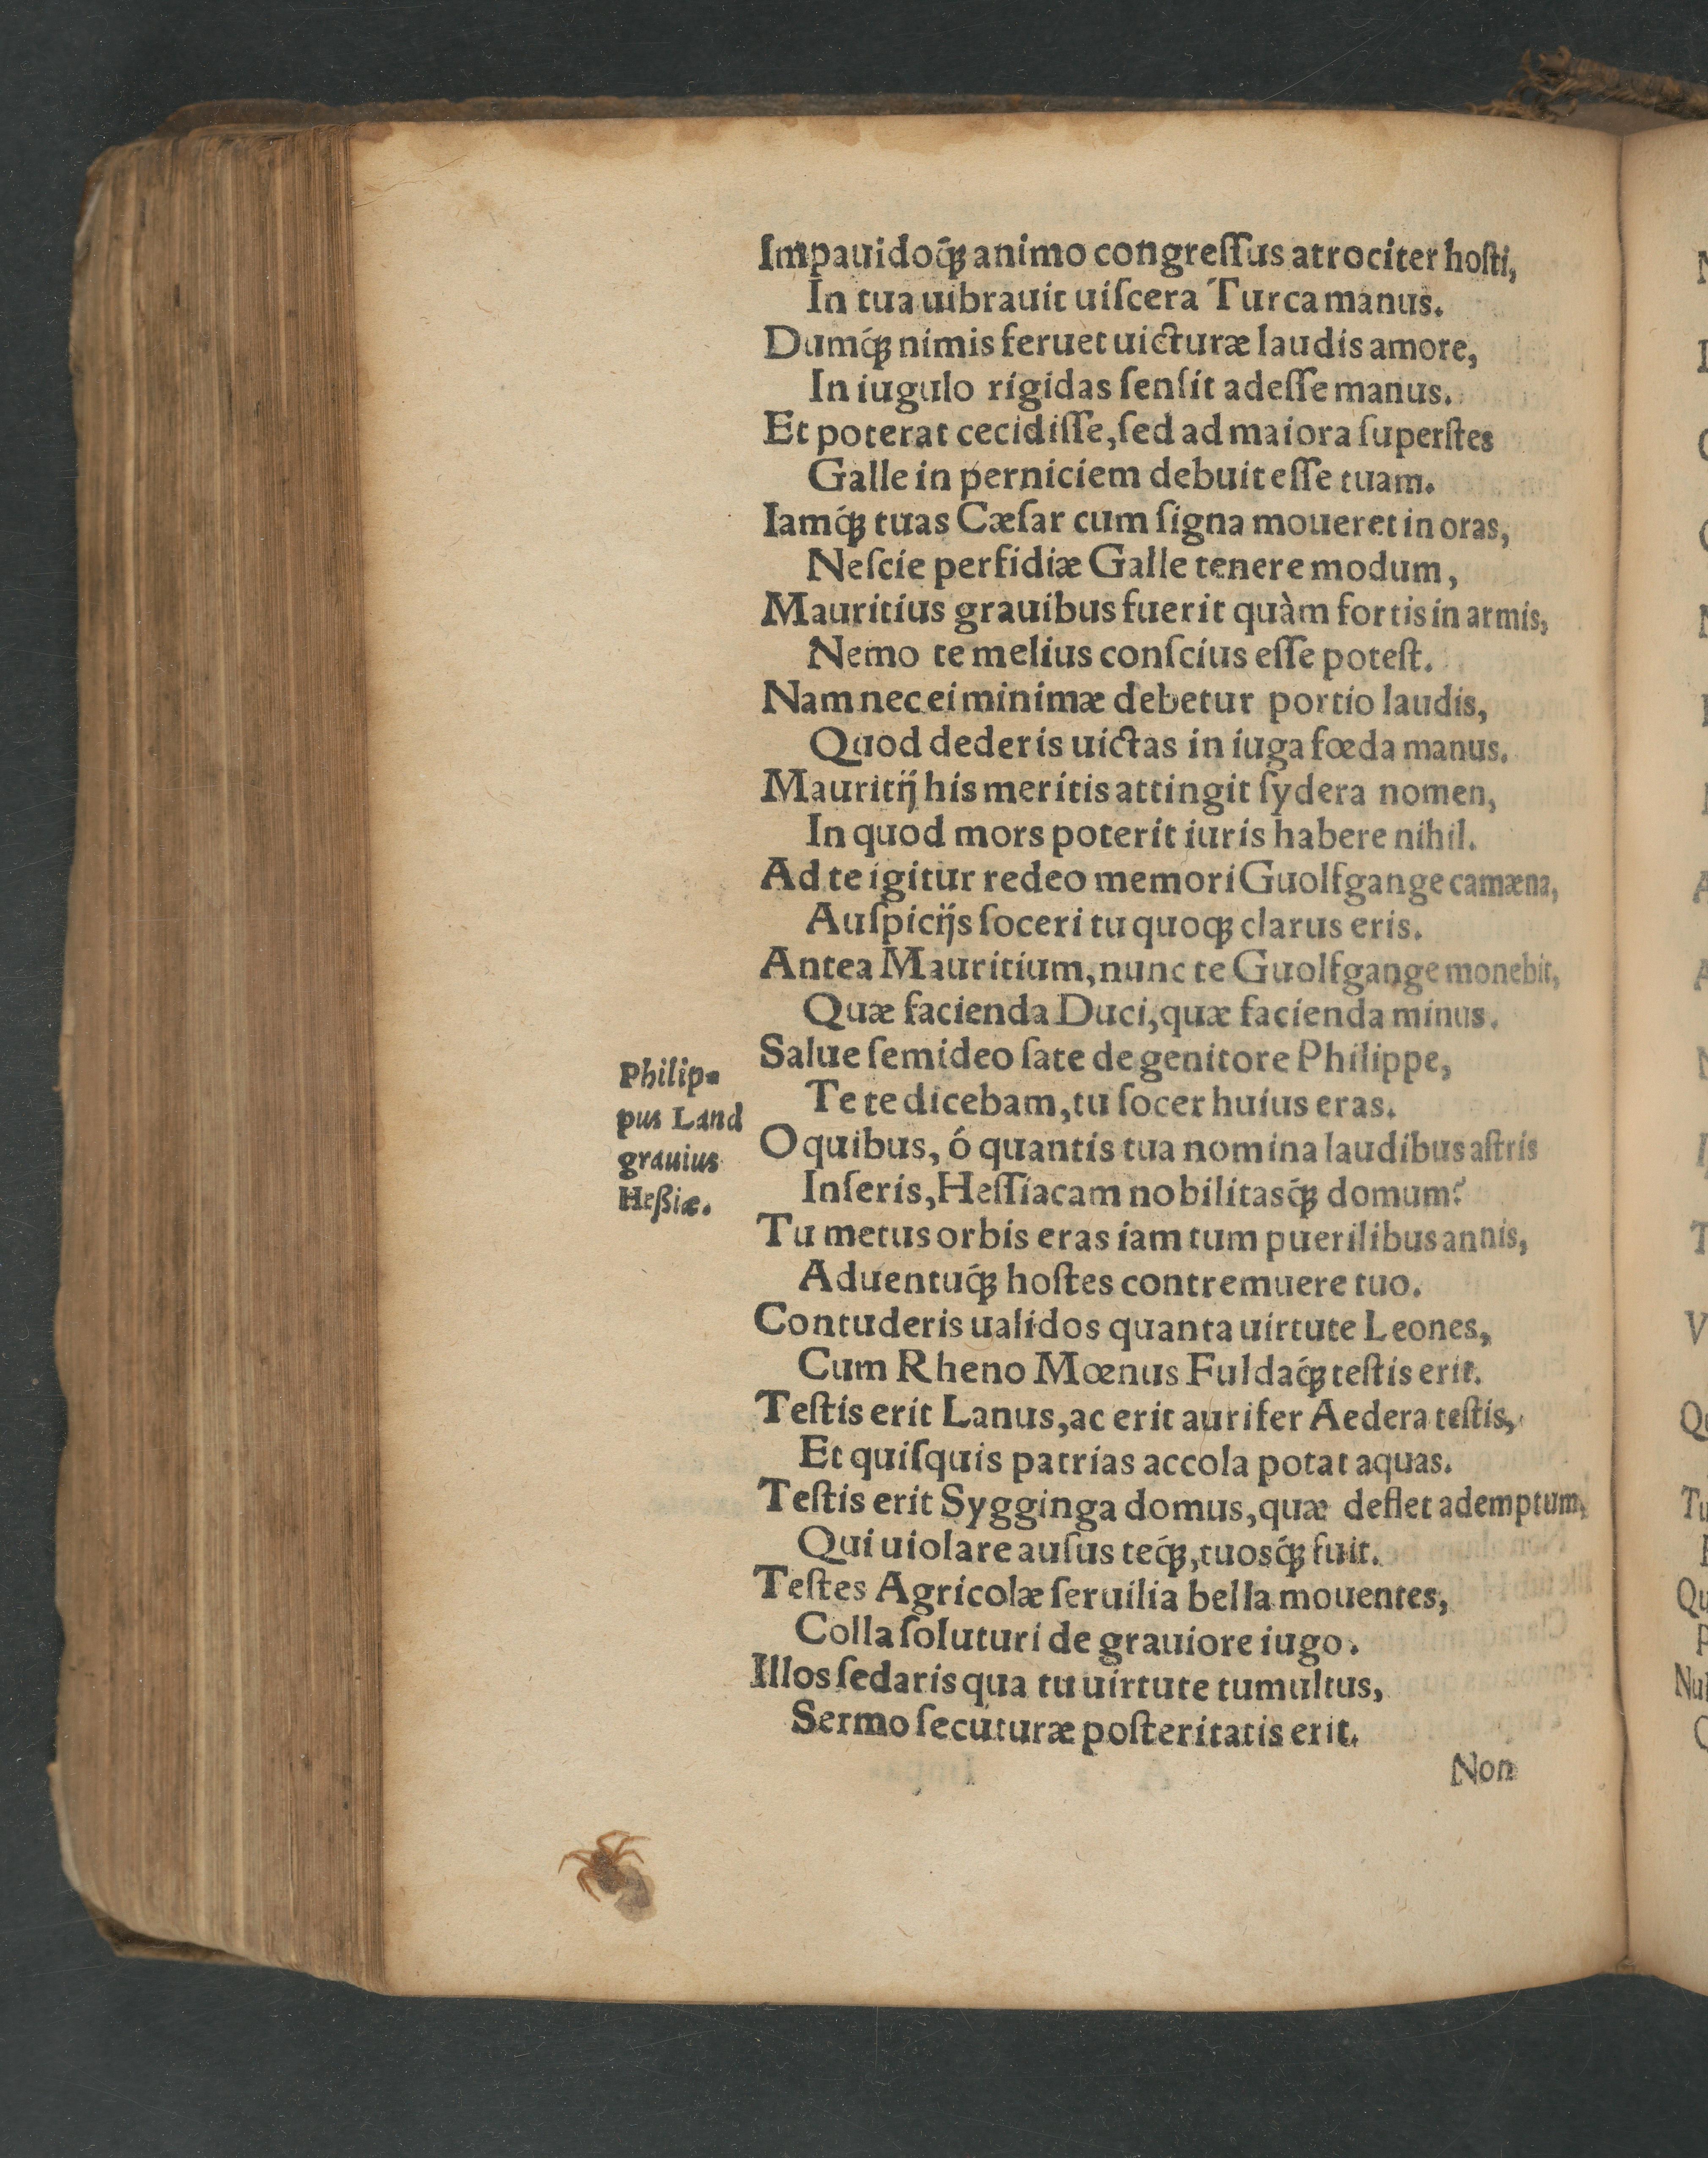 Impauidoq́ꝫ animo congreſſus atrociter hoſti,
In tua uibrauit uiſcera Turca manus.
Dumq́ꝫ nimis feruet uicturæ laudis amore,
In iugulo rigidas ſenſit adeſſe manus.
Et poterat cecidiſſe, ſed ad maiora ſuperſtes
Galle in perniciem debuit eſſe tuam.
Iamq́ꝫ tuas Cæſar cum ſigna moueret in oras,
Neſcie perfidiæ Galle tenere modum,
Mauritius grauibus fuerit quàm fortis in armis,
Nemo te melius conſcius eſſe poteſt.
Nam nec ei minimæ debetur portio laudis,
Quod dederis uictas in iuga fœda manus.
Mauritij his meritis attingit ſydera nomen,
In quod mors poterit iuris habere nihil.
Ad te igitur redeo memori Guolfgange camæna,
Auſpicijs ſoceri tu quoqꝫ clarus eris.
Antea Mauritium, nunc te Guolfgange monebit,
Quæ facienda Duci, quæ facienda minus.
Philip⸗
pus Land
grauius
Heßiæ.
Salue ſemideo ſate de genitore Philippe,
Te te dicebam, tu ſocer huius eras.
O quibus, ó quantis tua nomina laudibus aſtris
Inſeris, Heſſiacam nobilitasq́ꝫ domum?
Tu metus orbis eras iam tum puerilibus annis,
Aduentuq́ꝫ hoſtes contremuere tuo.
Contuderis ualidos quanta uirtute Leones,
Cum Rheno Mœnus Fuldaq́ꝫ teſtis erit.
Teſtis erit Lanus, ac erit aurifer Aedera teſtis,
Et quiſquis patrias accola potat aquas.
Teſtis erit Sygginga domus, quæ deflet ademptum,
Qui uiolare auſus teq́ꝫ, tuosq́ꝫ fuit.
Teſtes Agricolæ ſeruilia bella mouentes,
Colla ſoluturi de grauiore iugo.
Illos ſedaris qua tu uirtute tumultus,
Sermo ſecuturæ poſteritatis erit.
Non